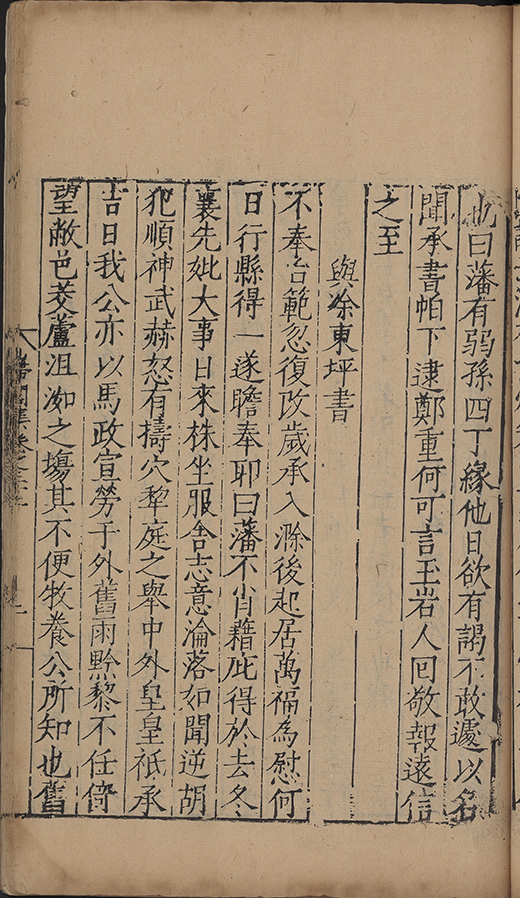 也曰藩有弱孫四丁緣他日欲有謁不敢遽以名
聞承書帕下逮鄭重何可言玉岩人回敬報遠信
之至
與徐東坪書
不奉台範忽復改歲承入滁後起居萬福為慰何
日行縣得一遂瞻奉耶曰藩不肖藉庇得於去冬
襄先妣大事日來株坐服舎志意淪落如聞逆胡
犯順神武赫怒有擣穴犂庭之舉中外皇皇祇承
吉日我公亦以馬政宣勞于外舊雨黔黎不任倚
望敝邑茭蘆沮洳之塲其不便牧養公所知也舊